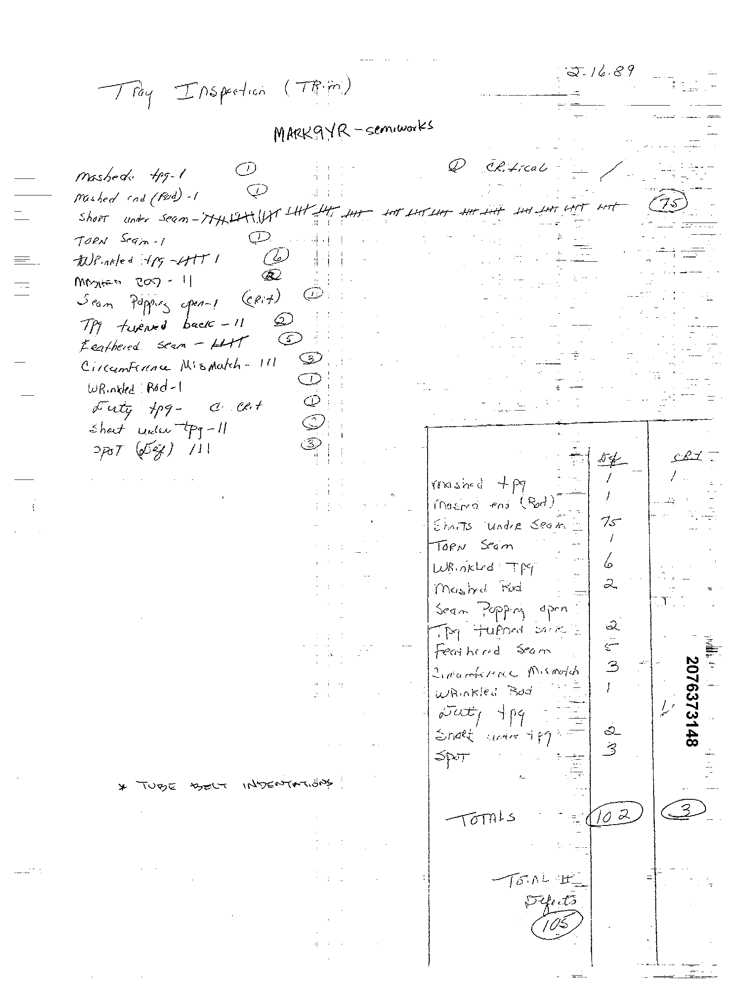 2-16-89
Tray Inspection (TRim)
MARK9YR - semiworks
Mashed tpg-1 ① ① CRitical - /
Mashed end (Rod) -1 ①
Short under seam - 75
TORN Seam-1 ①
WRinkled tpg - 1 ⑥
Rod - 11 ②
Seam Popping open-1 (CRit) ①
Tpg turned back - 11 ②
Feathered seam - ⑤
Circumference Mismatch - 111 ③
WRinkled Rod-1 ①
Dirty tpg - CRit ①
Short under tpg-11 ②
SPOT (Def) 111 ③
Def CRT
Mashed tpg 1 1
Mashed end (Rod) 1
Shorts under Seam 75
TORN Seam 1
WRinkled Tpg 6
Mashed Rod 2
Seam Popping open
Tpg turned back 2
Feathered Seam 5
Circumference Mismatch 3
WRinkled Rod 1
Dirty tpg 1
Short under tpg 2
SPOT 3
2076373148
* TUBE BELT INDENTATIONS
TOTALS 102 3
TOTAL #
Defects
105